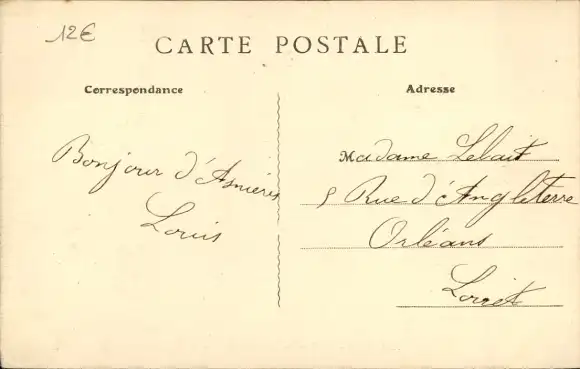 12€
CARTE POSTALE
Correspondance
Bonjour d'Asnières
Louis
Adresse
Madame Lebait
5 Rue d'Angleterre
Orléans
Loiret